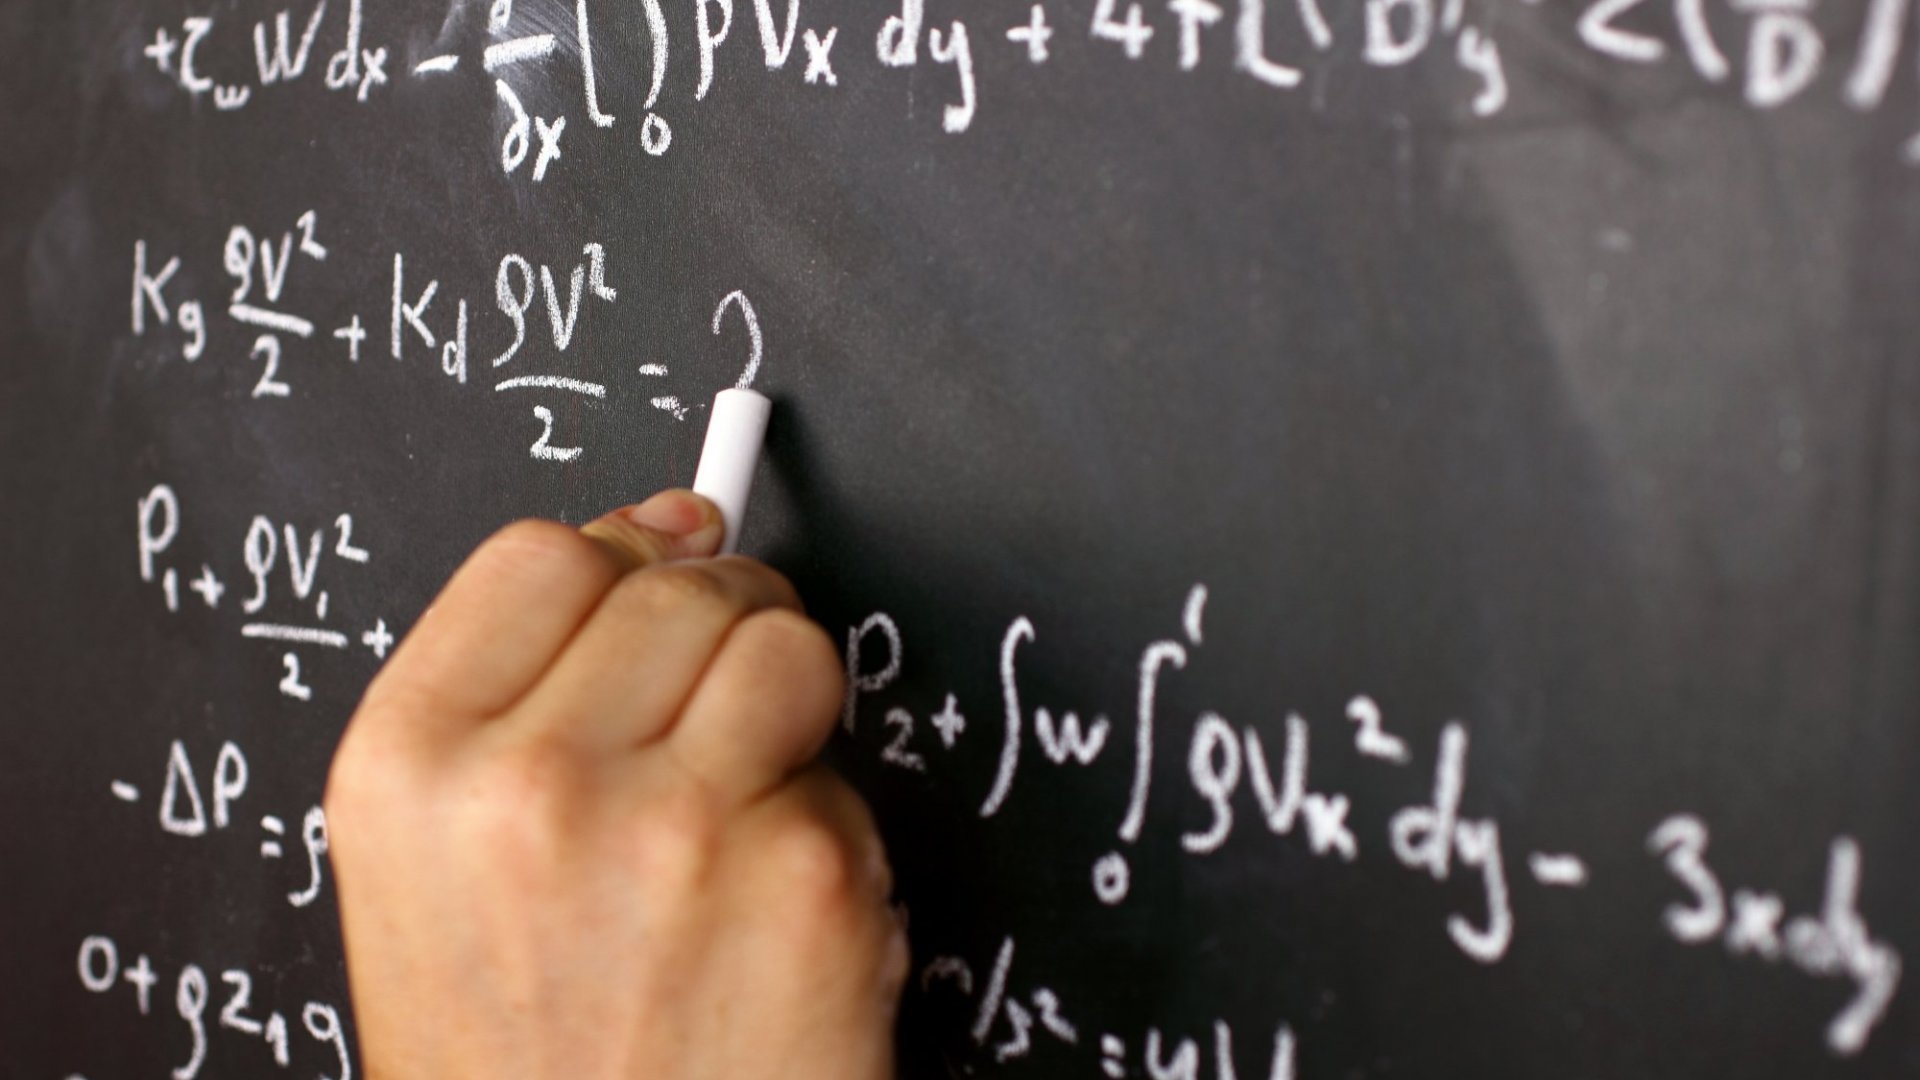 +τ_w W dx - ∂/∂x [ ∫_0 ρV_x dy + 4
K_g ρV²/2 + K_d ρV²/2 = ?
P_1 + ρV_1²/2 +
P_2 + ∫w∫_0^1 ρV_x² dy - 3xdy
-ΔP = ρ
0 + ρz_1g
m/s² =